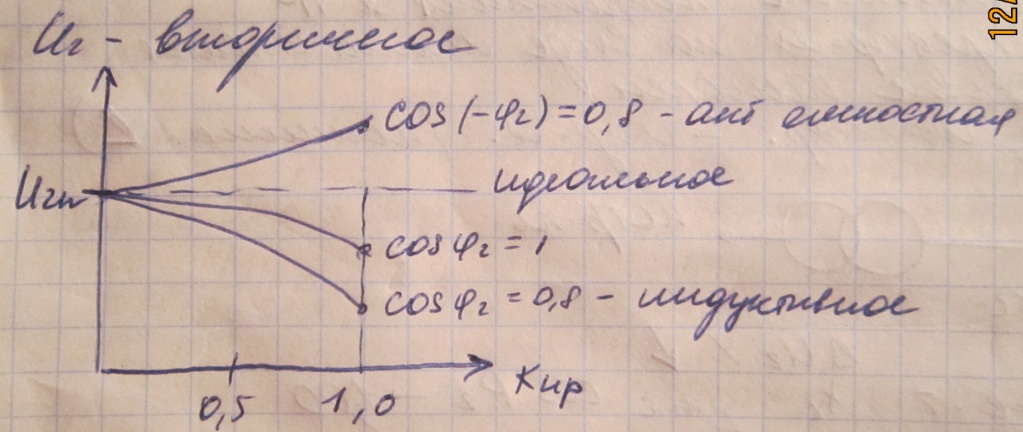 U₂ - вторичное
12/
cos(-φ₂) = 0,8 - ёмкостная
U₂н
идеальное
cos φ₂ = 1
cos φ₂ = 0,8 - индуктивное
0,5
1,0
Кнр